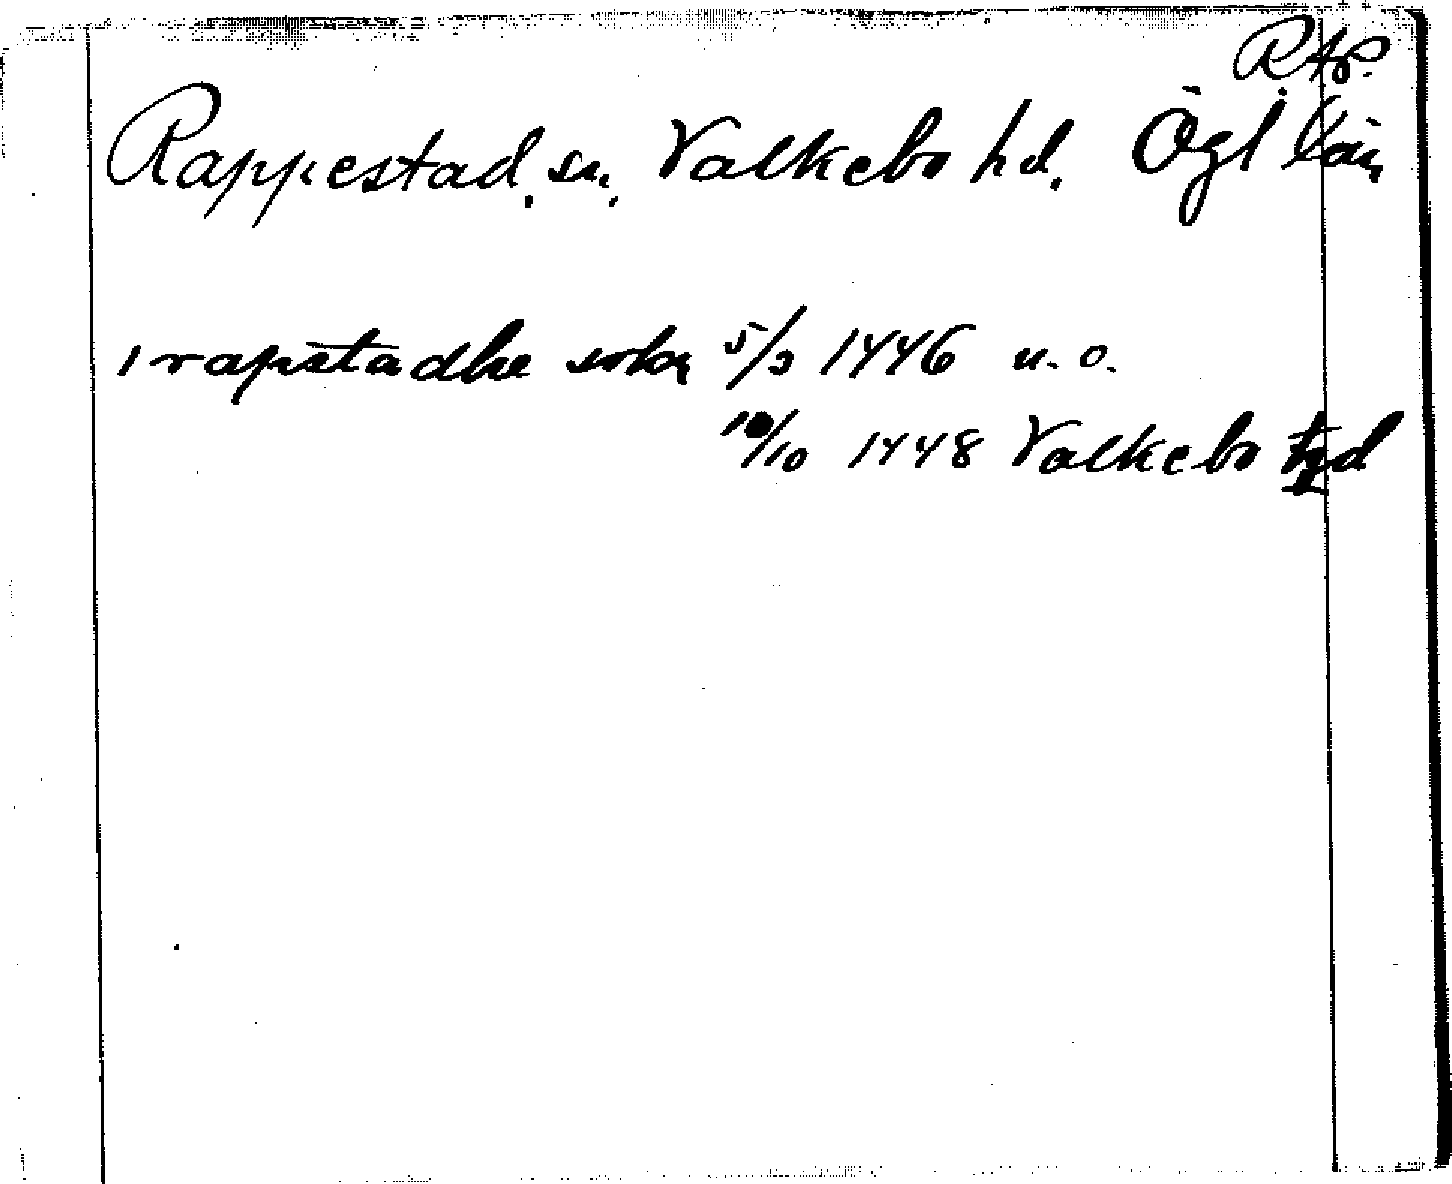 Rappestad. sn. Valkebo hd. Ögl län
i rapstadhe sokn 5/3 1446 u. o.
10/10 1448 Valkebo hd